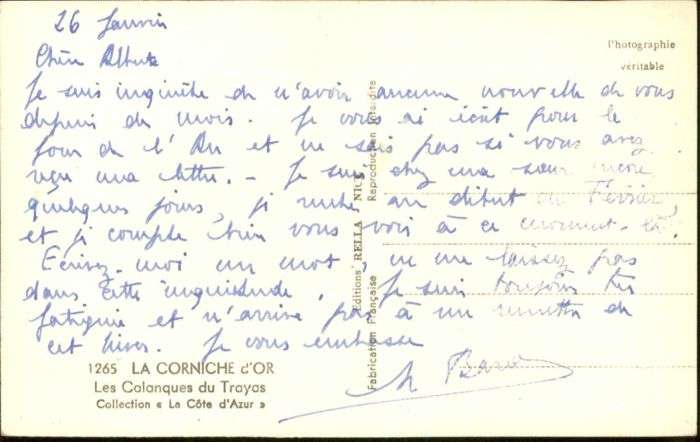 26 Janvier
l'Photographie
véritable
Chère
Je suis inquiète de n'avoir aucune nouvelle de vous
depuis des mois. Je vous ai écrit pour le
jour de l'An et ne sais pas si vous avez
reçu ma lettre. - Je suis chez ma sœur encore
quelques jours, je rentre au début de Février,
et je compte bien vous voir à ce moment-là.
Ecrivez-moi un mot, ne me laissez pas
dans cette inquiétude. Je suis toujours très
fatiguée et n'arrive pas à me remettre de
cet hiver. Je vous embrasse
Editions RELLA NICE
Reproduction Interdite
Fabrication Française
1265 LA CORNICHE d'OR
Les Calanques du Trayas
Collection « La Côte d'Azur »